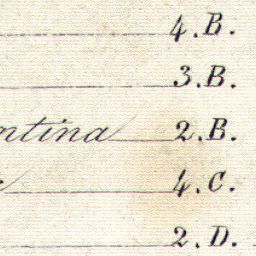 4.B.
3.B.
ntina 2.B.
4.C.
2.D.